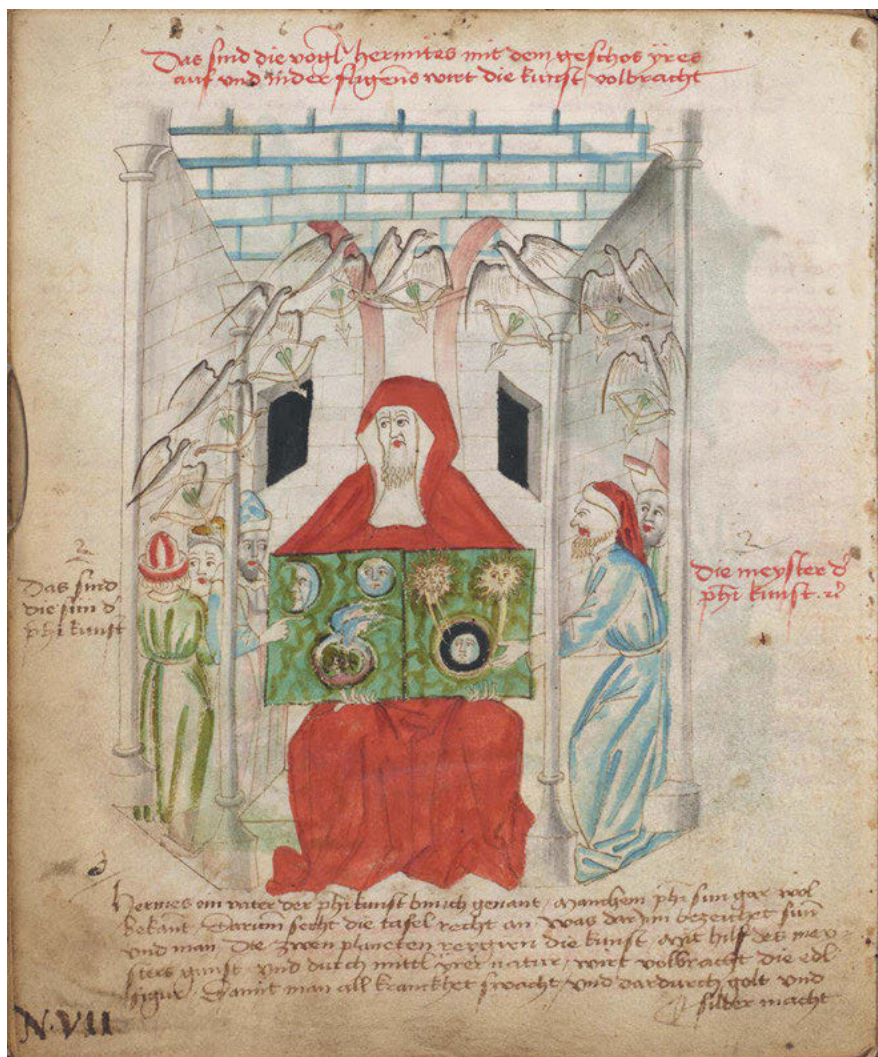 Das sind die vögl hermetes mit dem geschos yres
auf und nider fligens wirt die kunst volbracht
Das sind
die sun d'
phi kunst
die meyster d'
phi kunst
Hermes ein vater der phi kunst bin ich genant, Manchem phi sun gar wol
bekant, Darum secht die tafel recht an, was darin bezeichet sun
und man, Die zwen planeten regirn die kunst, Mit hilf des mey-
sters gunst, und durch mittl yrer natur, wirt volbracht die edl
figur, Damit man all kranckhet swacht, und dardurch golt und
silber macht
N·VII